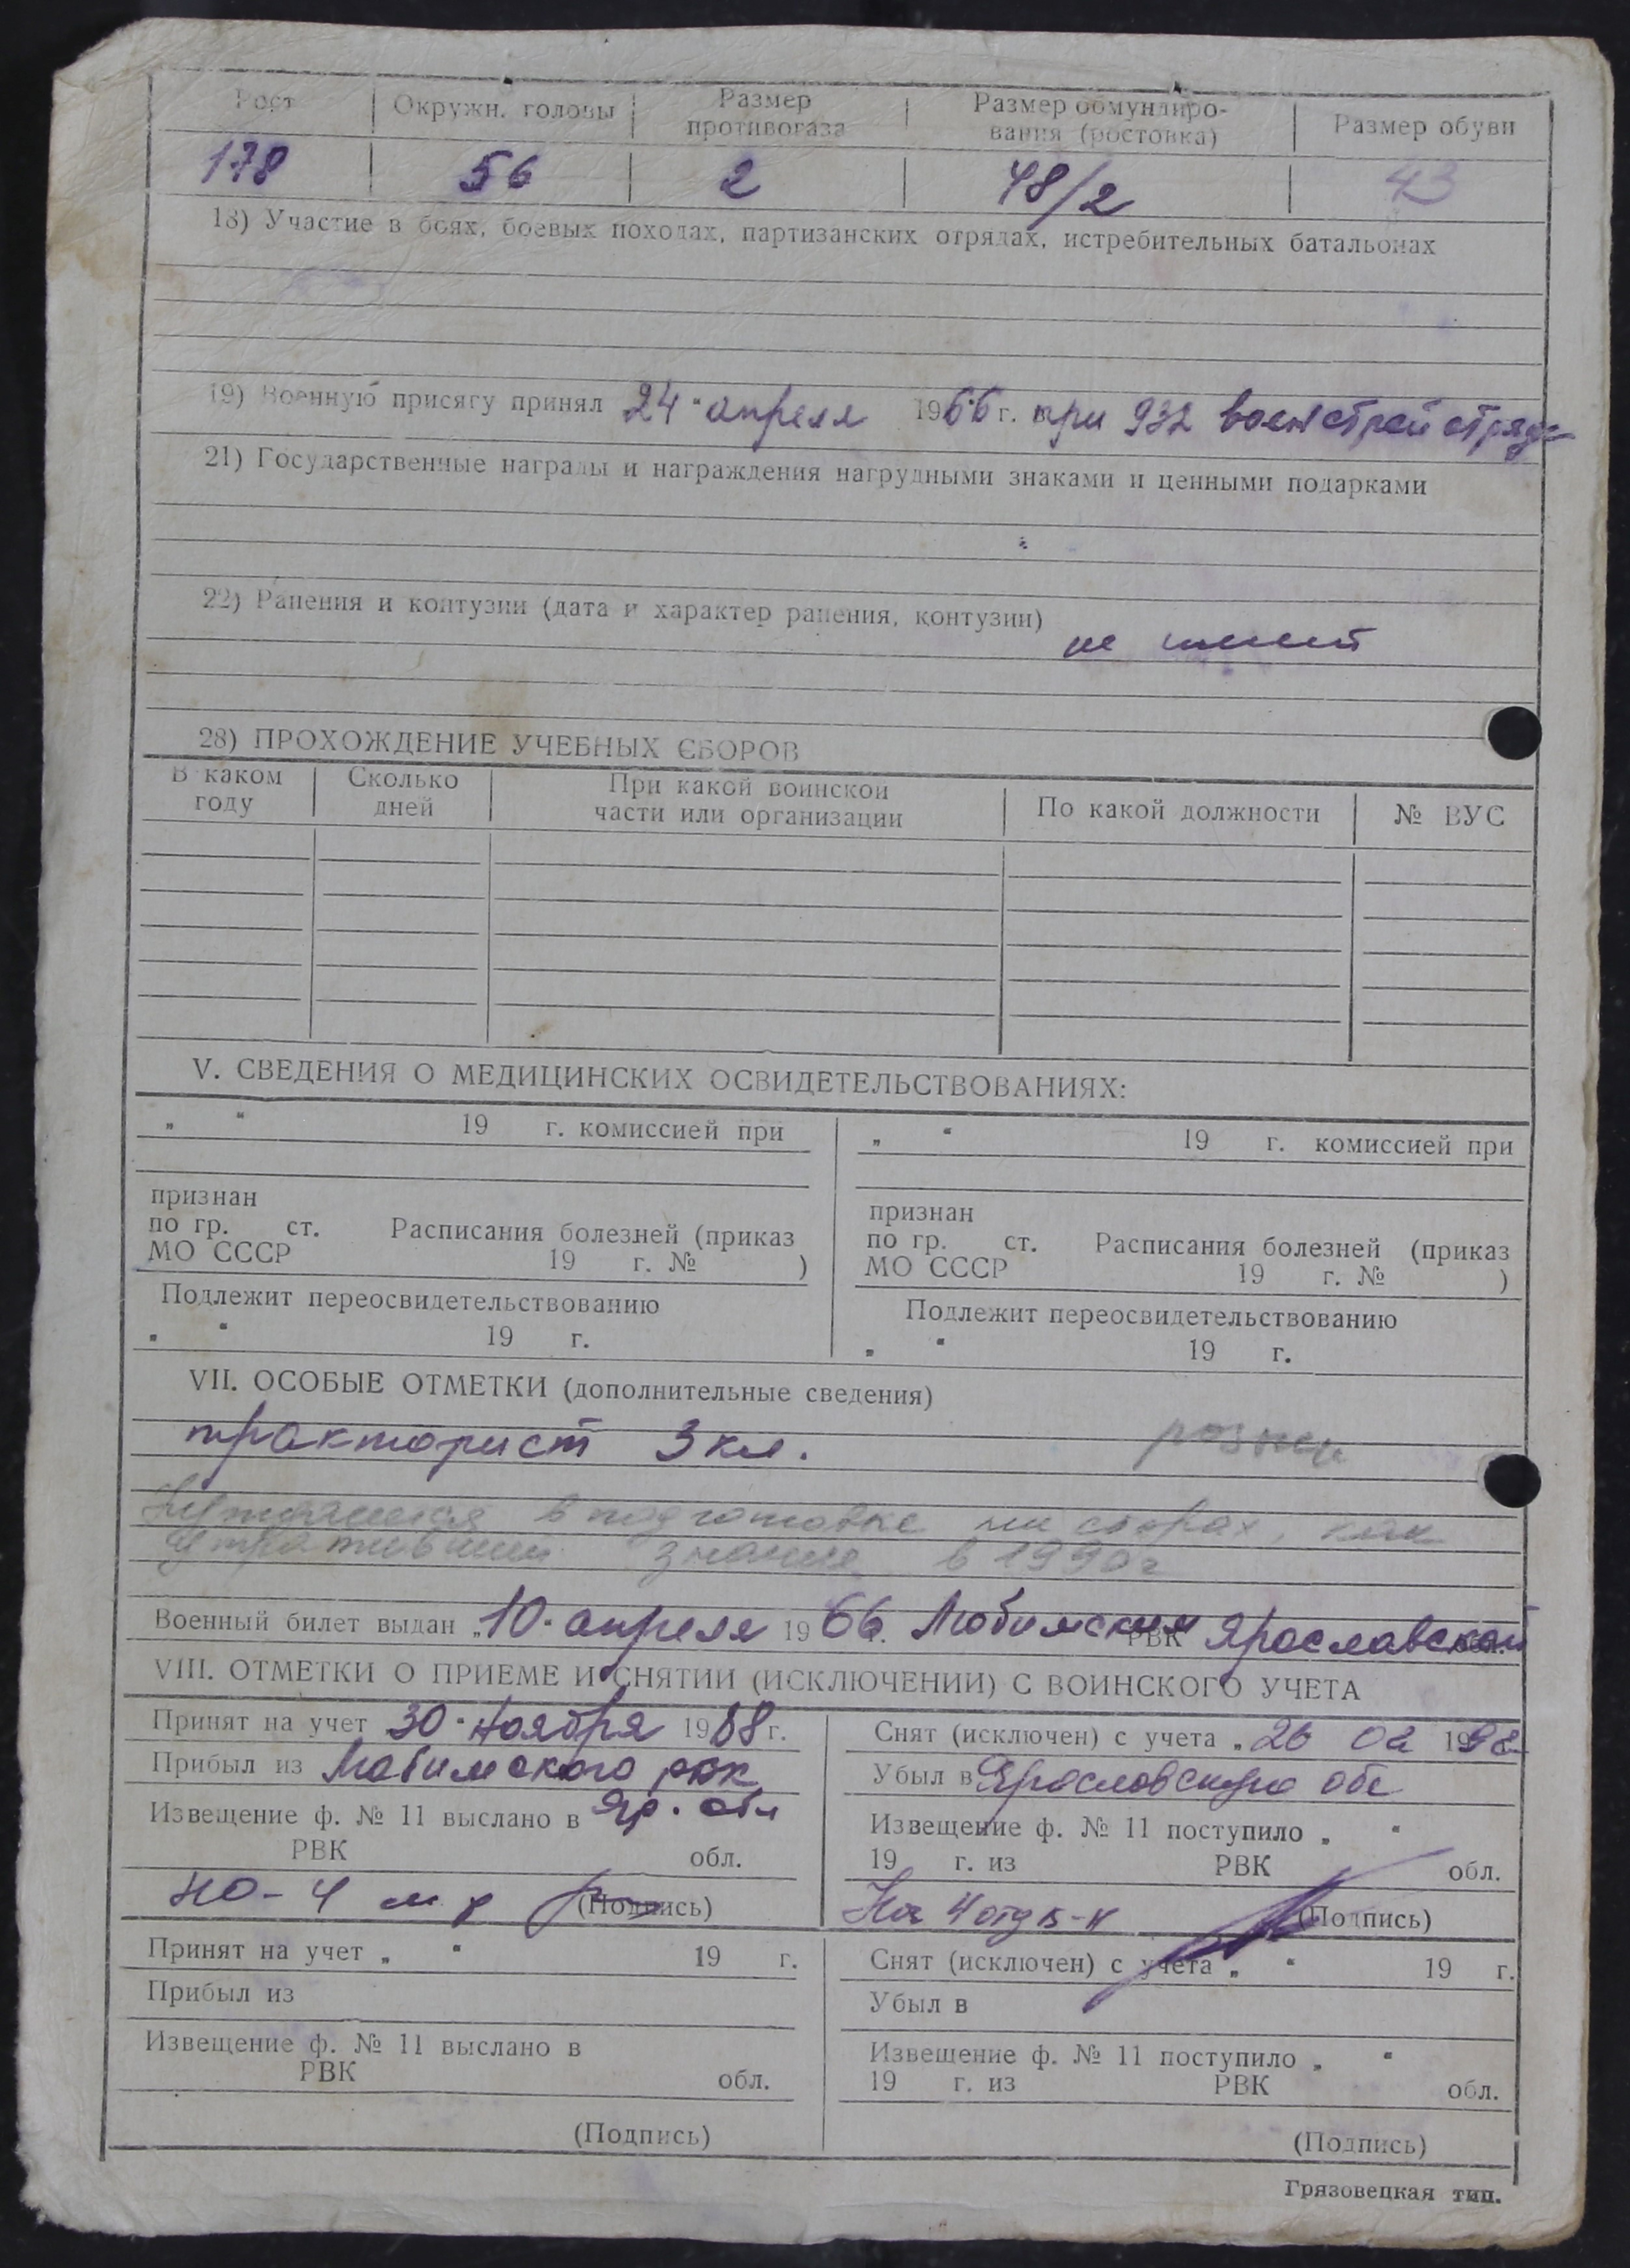 Рост Окружн. головы Размер противогаза Размер обмундиро-вания (ростовка) Размер обуви
178 56 2 48/2 43
18) Участие в боях, боевых походах, партизанских отрядах, истребительных батальонах
19) Военную присягу принял 24 "апреля 1966 г. при 932 воен строй отряде
21) Государственные награды и награждения нагрудными знаками и ценными подарками
22) Ранения и контузии (дата и характер ранения, контузии)
не имеет
28) ПРОХОЖДЕНИЕ УЧЕБНЫХ СБОРОВ
В каком году Сколько дней При какой воинской части или организации По какой должности № ВУС
V. СВЕДЕНИЯ О МЕДИЦИНСКИХ ОСВИДЕТЕЛЬСТВОВАНИЯХ:
„ “ 19 г. комиссией при
признан
по гр. ст. Расписания болезней (приказ
МО СССР 19 г. № )
Подлежит переосвидетельствованию
„ “ 19 г.
„ “ 19 г. комиссией при
признан
по гр. ст. Расписания болезней (приказ
МО СССР 19 г. № )
Подлежит переосвидетельствованию
„ “ 19 г.
VII. ОСОБЫЕ ОТМЕТКИ (дополнительные сведения)
тракторист 3 кл.
Нуждается в подготовке на сборах, как
утративший знания в 1990 г
Военный билет выдан „10" апреля 1966 г. Любимским РВК Ярославской обл.
VIII. ОТМЕТКИ О ПРИЕМЕ И СНЯТИИ (ИСКЛЮЧЕНИИ) С ВОИНСКОГО УЧЕТА
Принят на учет 30 "ноября 1988 г.
Прибыл из Любимского рвк
Извещение ф. № 11 выслано в Яр. обл
РВК обл.
НО-4 м-р (Подпись)
Снят (исключен) с учета „26 02 1998
Убыл в Ярославскую обл
Извещение ф. № 11 поступило „ “
19 г. из РВК обл.
На 4 отд п-к (Подпись)
Принят на учет „ “ 19 г.
Прибыл из
Извещение ф. № 11 выслано в
РВК обл.
(Подпись)
Снят (исключен) с учета „ “ 19 г.
Убыл в
Извещение ф. № 11 поступило „ “
19 г. из РВК обл.
(Подпись)
Грязовецкая тип.